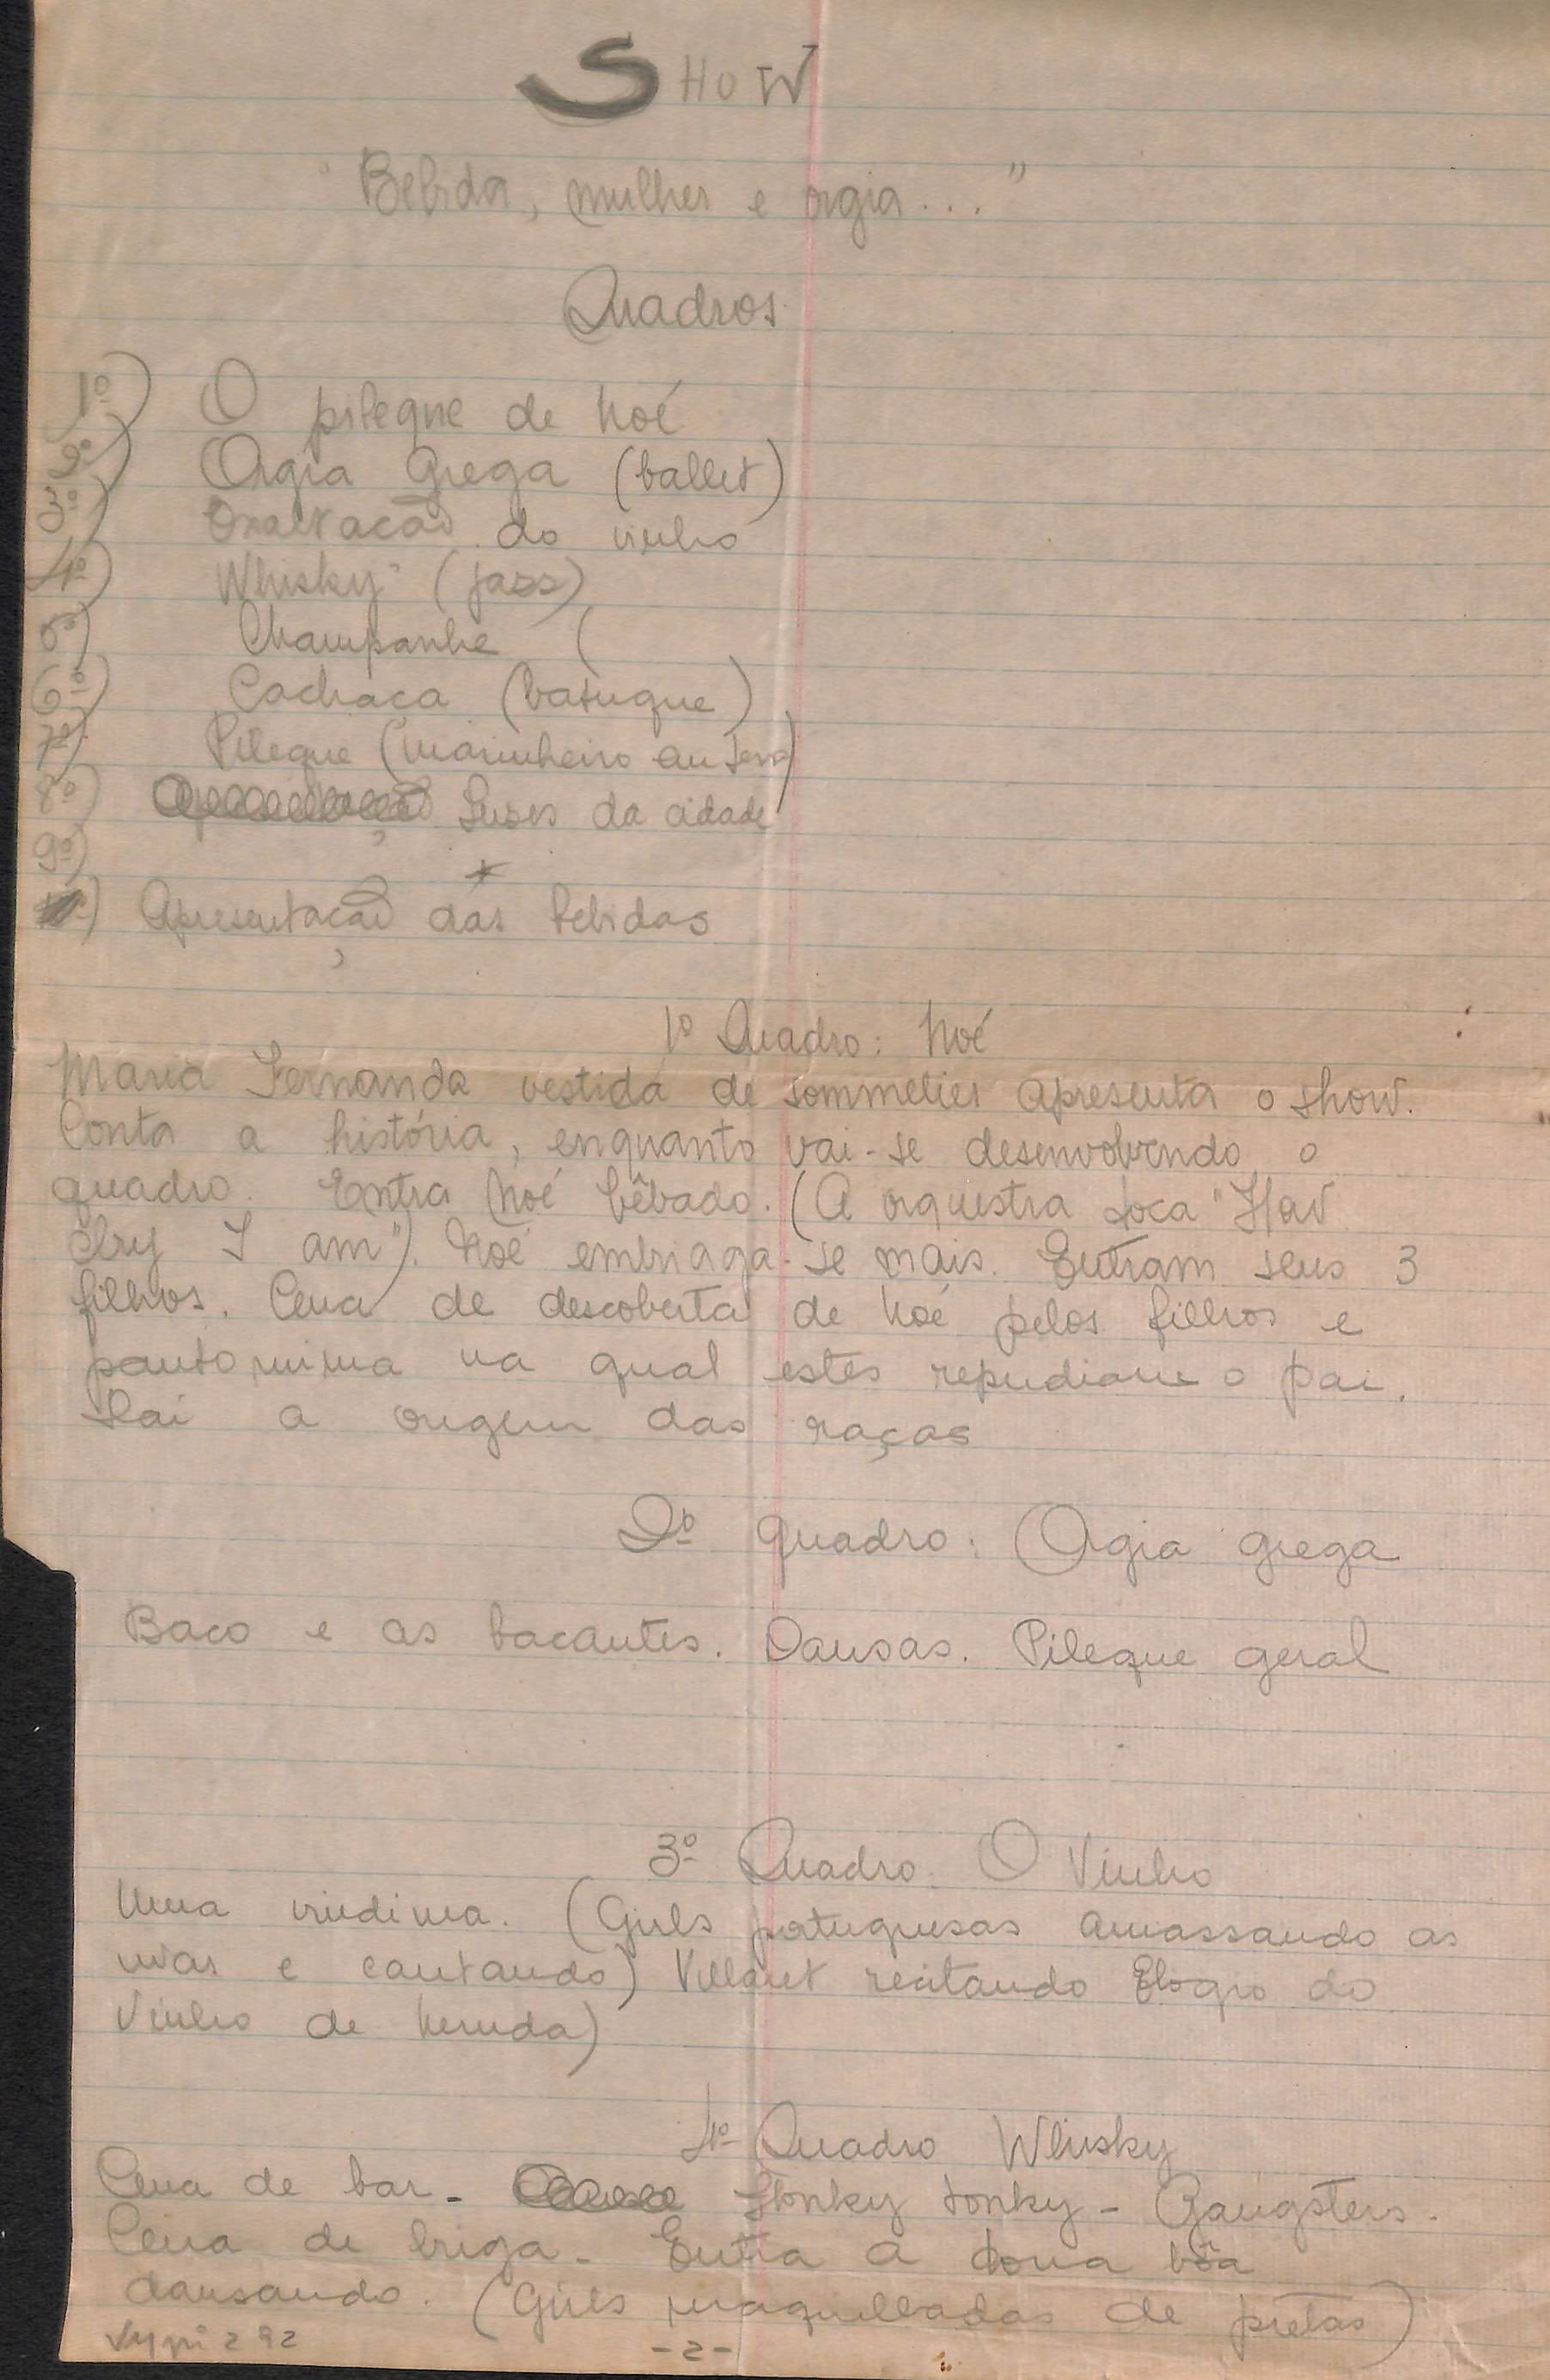 SHOW
"Bebida, mulher e orgia..."
Quadros
1º) O pileque de Noé
2º) Orgia Grega (ballet)
3º) Exaltação do vinho
4º) Whisky (jass)
5º) Champanhe (
6º) Cachaça (batuque)
7º) Pileque (Marinheiro em terra)
8º) Luzes da cidade
9º)
Apresentação das bebidas
1º Quadro: Noé
Maria Fernanda vestida de sommelier apresenta o show.
Conta a história, enquanto vai-se desenvolvendo o
quadro. Entra Noé bêbado. (A orquestra toca "How
dry I am"). Noé embriaga-se mais. Entram seus 3
filhos. Cena de descoberta de Noé pelos filhos e
pantomima na qual estes repudiam o pai.
Sai a origem das raças
2º quadro: Orgia grega
Baco e as bacantes. Dansas. Pileque geral
3º Quadro. O Vinho
Uma vindima. (Girls portuguesas amassando as
uvas e cantando) Villaret recitando Elogio do
Vinho de Neruda)
4º Quadro Whisky
Cena de bar - Honky tonky - Gangsters.
Cena de briga - Entra a dona bôa
dansando. (Girls maquilladas de pretas)
292
-2-